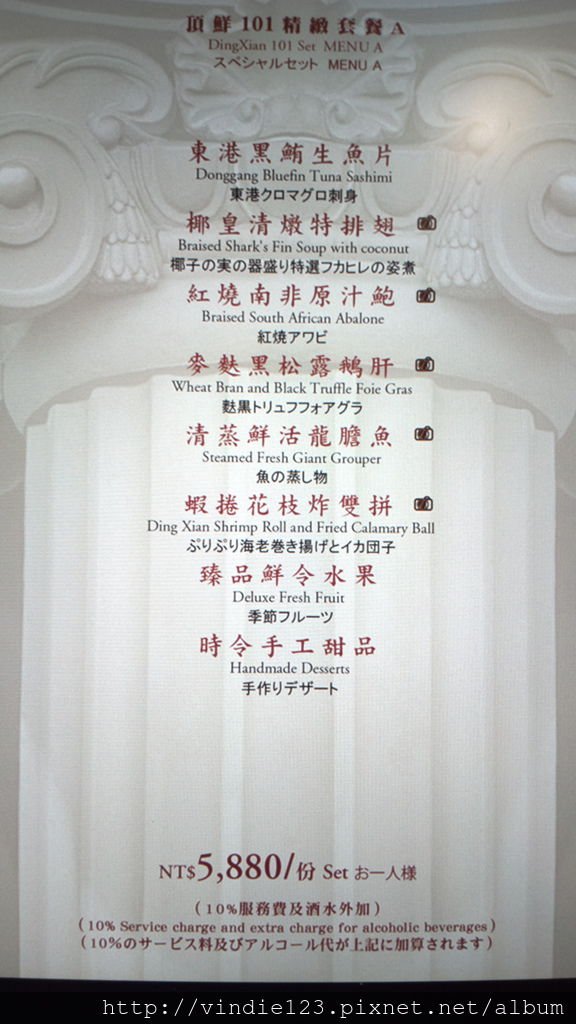 頂鮮101精緻套餐A
DingXian 101 Set MENU A
スペシャルセット MENU A
東港黑鮪生魚片
Donggang Bluefin Tuna Sashimi
東港クロマグロ刺身
椰皇清燉特排翅
Braised Shark's Fin Soup with coconut
椰子の実の器盛り特選フカヒレの姿煮
紅燒南非原汁鮑
Braised South African Abalone
紅焼アワビ
麥麩黑松露鵝肝
Wheat Bran and Black Truffle Foie Gras
麩黒トリュフフォアグラ
清蒸鮮活龍膽魚
Steamed Fresh Giant Grouper
魚の蒸し物
蝦捲花枝炸雙拼
Ding Xian Shrimp Roll and Fried Calamary Ball
ぷりぷり海老巻き揚げとイカ団子
臻品鮮令水果
Deluxe Fresh Fruit
季節フルーツ
時令手工甜品
Handmade Desserts
手作りデザート
NT$5,880/份 Set お一人様
(10%服務費及酒水外加)
(10% Service charge and extra charge for alcoholic beverages)
(10%のサービス料及びアルコール代が上記に加算されます)
http://vindie123.pixnet.net/album